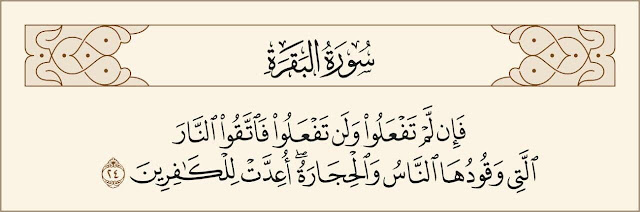 سُورَةُ البَقَرَةِ
فَإِن لَّمْ تَفْعَلُوا۟ وَلَن تَفْعَلُوا۟ فَٱتَّقُوا۟ ٱلنَّارَ
ٱلَّتِى وَقُودُهَا ٱلنَّاسُ وَٱلْحِجَارَةُ ۖ أُعِدَّتْ لِلْكَـٰفِرِينَ ٢٤